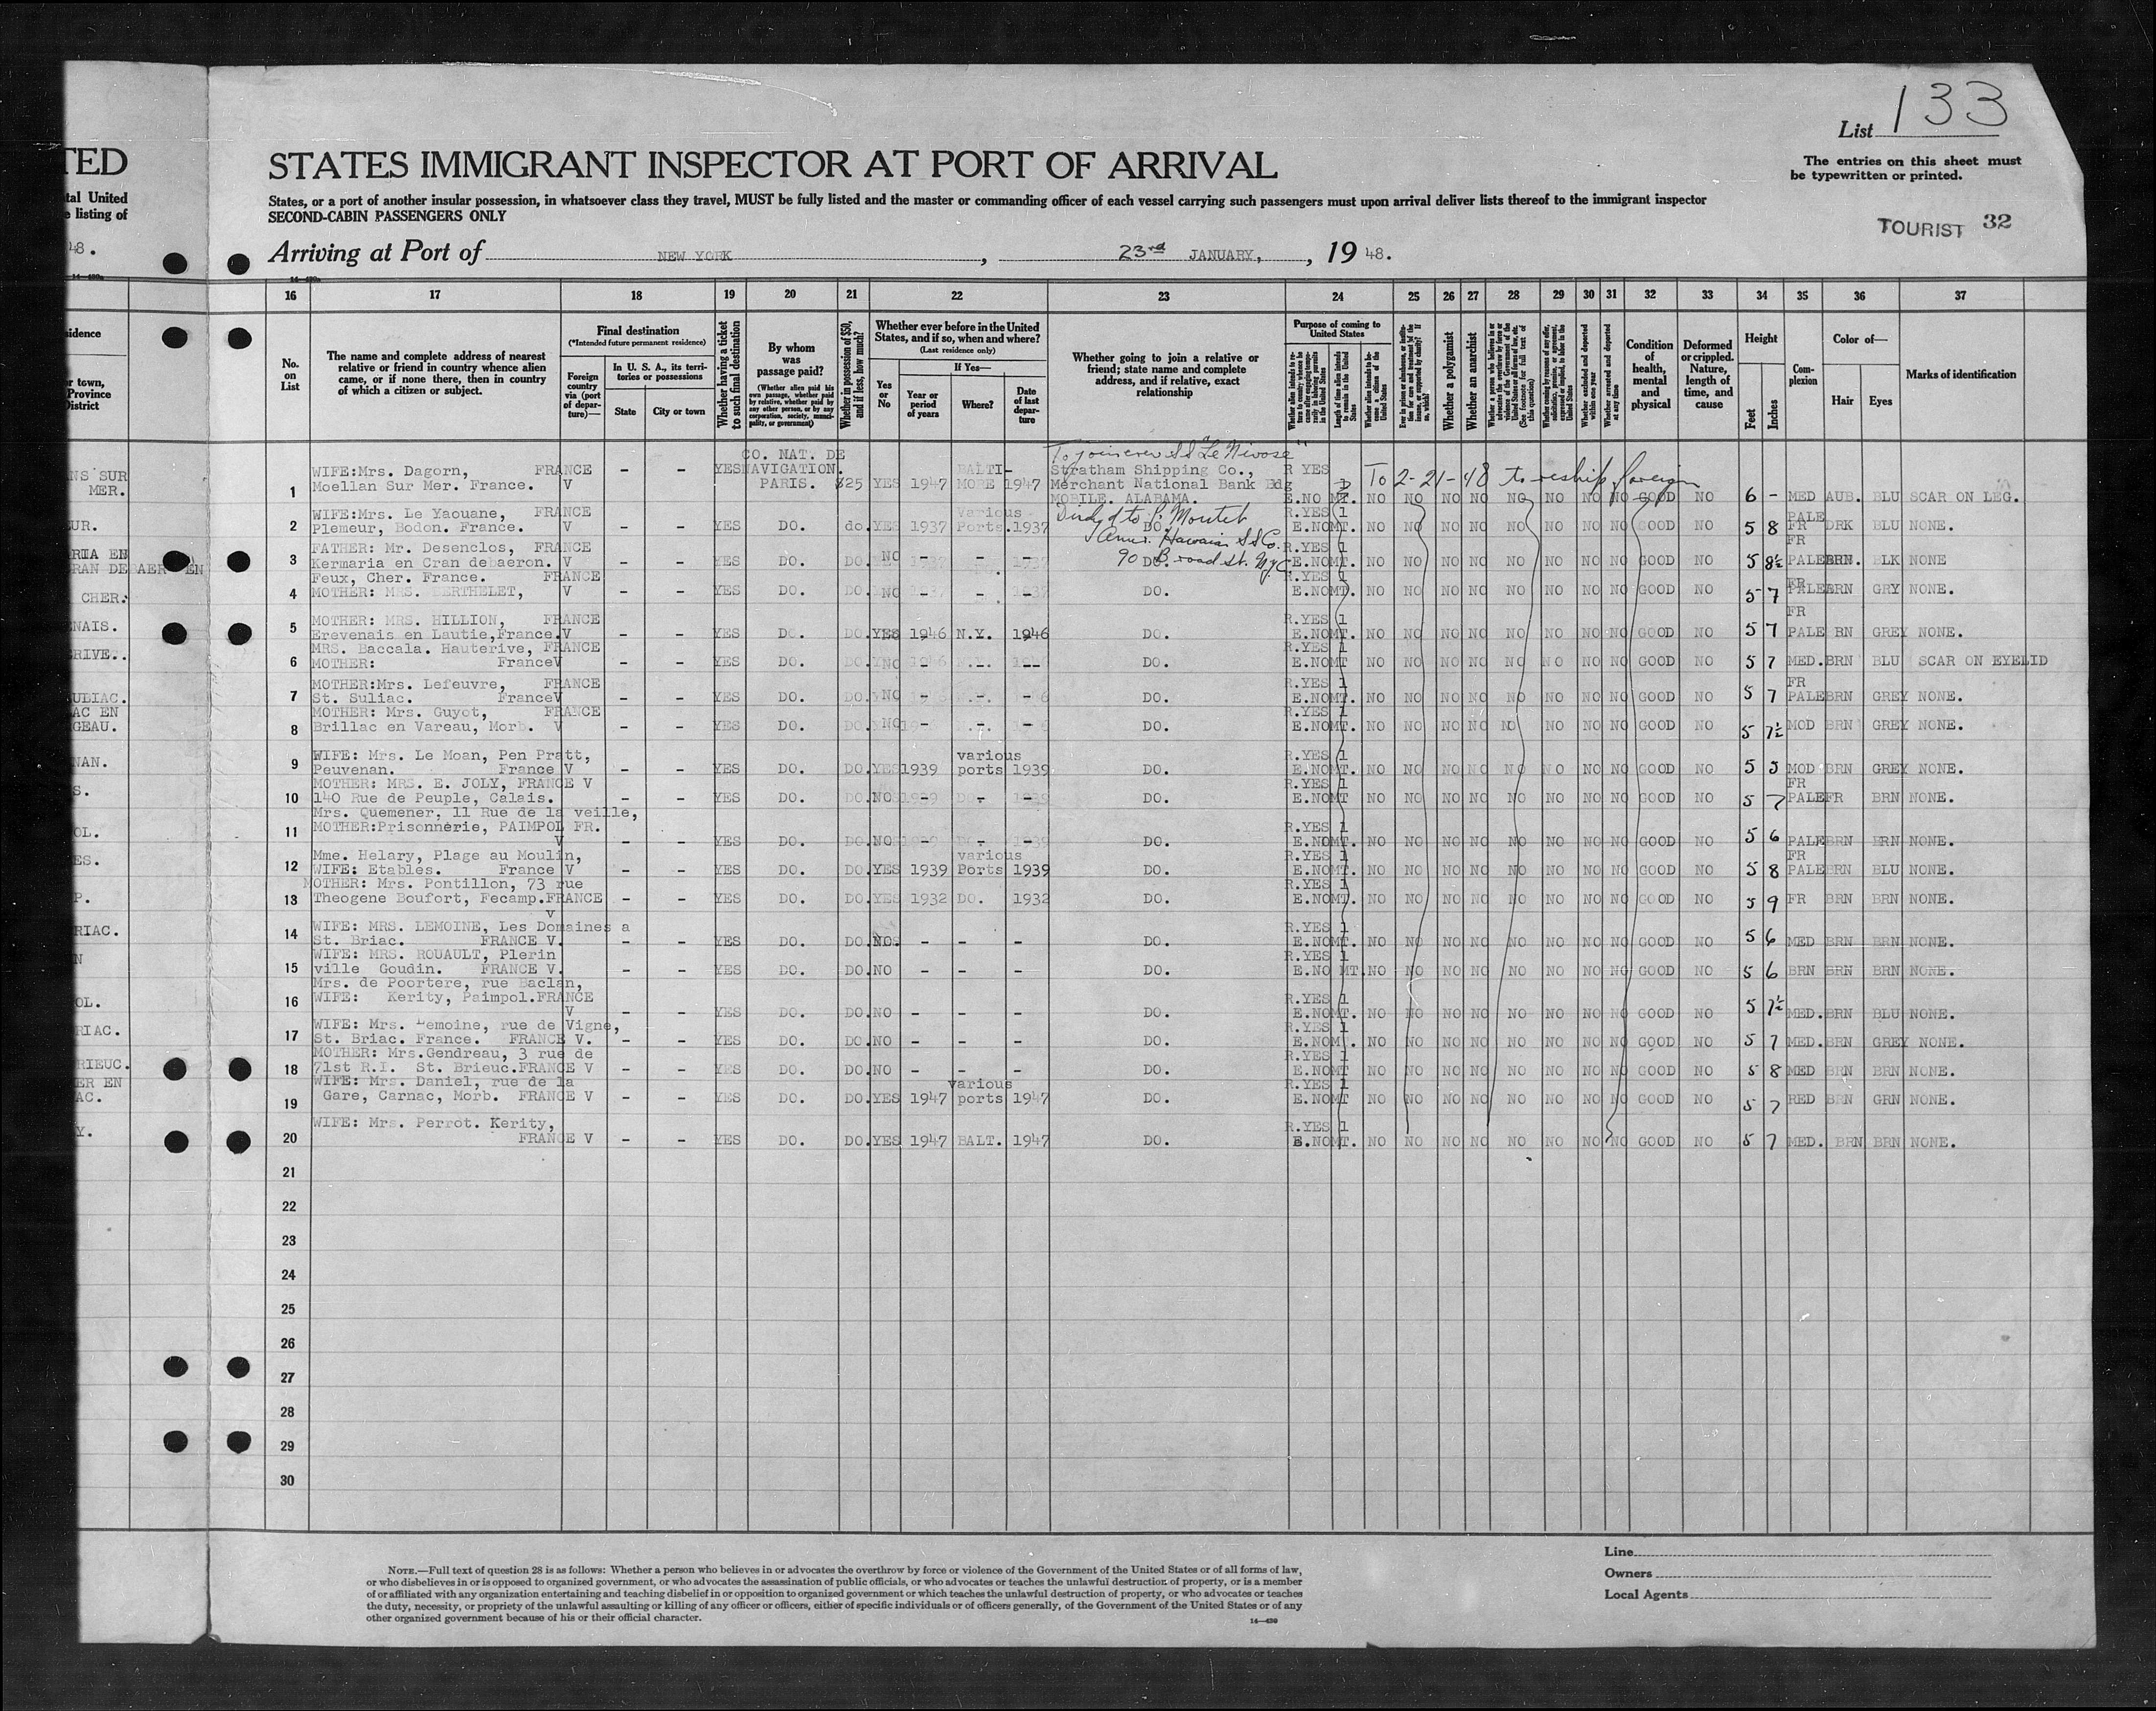 List 133
The entries on this sheet must
be typewritten or printed.
TOURIST 32
TED
STATES IMMIGRANT INSPECTOR AT PORT OF ARRIVAL
tal United
States, or a port of another insular possession, in whatsoever class they travel, MUST be fully listed and the master or commanding officer of each vessel carrying such passengers must upon arrival deliver lists thereof to the immigrant inspector
e listing of
SECOND-CABIN PASSENGERS ONLY
48.
Arriving at Port of NEW YORK, 23rd JANUARY, 1948.
16 17 18 19 20 21 22 23 24 25 26 27 28 29 30 31 32 33 34 35 36 37
No. on List
The name and complete address of nearest relative or friend in country whence alien came, or if none there, then in country of which a citizen or subject.
Final destination
(*Intended future permanent residence)
Foreign country via (port of departure)—
In U. S. A., its territories or possessions
State City or town
Whether having a ticket to such final destination
By whom was passage paid?
(Whether alien paid his own passage, whether paid by relative, whether paid by any other person, or by any corporation, society, municipality, or government)
Whether in possession of $50, and if less, how much?
Whether ever before in the United States, and if so, when and where?
(Last residence only)
Yes or No
If Yes—
Year or period of years
Where?
Date of last departure
Whether going to join a relative or friend; state name and complete address, and if relative, exact relationship
Purpose of coming to United States
Length of time alien intends to remain in the United States
Whether a polygamist
Whether an anarchist
Whether arrested and deported at any time
Condition of health, mental and physical
Deformed or crippled. Nature, length of time, and cause
Height
Feet Inches
Complexion
Color of—
Hair Eyes
Marks of identification
To join crew SS "Le Nivose"
1 WIFE:Mrs. Dagorn, FRANCE
Moellan Sur Mer. France. V - - YES CO. NAT. DE NAVIGATION. PARIS. $25 YES 1947 BALTIMORE 1947 Stratham Shipping Co., Merchant National Bank Bdg MOBILE. ALABAMA. R YES E.NO MT. To 2-21-48 to reship foreign NO NO NO NO NO NO NO NO GOOD NO 6 - MED AUB. BLU SCAR ON LEG.
2 WIFE:Mrs. Le Yaouane, FRANCE
Plemeur, Bodon. France. V - - YES DO. do. YES 1937 Various Ports. 1937 DO. R.YES 1 E.NO MT. NO NO NO NO NO NO NO NO GOOD NO 5 8 PALE FR DRK BLU NONE.
Amer. Hawaian SS Co.
90 Broad St. N.Y.C.
3 FATHER: Mr. Desenclos, FRANCE
Kermaria en Cran debaeron. V - - YES DO. DO. NO - - - DO. R.YES 1 E.NO MT. NO NO NO NO NO NO NO NO GOOD NO 5 8½ FR PALE BRN. BLK NONE
4 Feux, Cher. France. FRANCE
MOTHER: MRS. BERTHELET, V - - YES DO. DO. NO - - - DO. R.YES 1 E.NO MT. NO NO NO NO NO NO NO NO GOOD NO 5 7 FR PALE BRN GRY NONE.
5 MOTHER: MRS. HILLION, FRANCE
Erevenais en Lautie,France. V - - YES DO. DO. YES 1946 N.Y. 1946 DO. R.YES 1 E.NO MT. NO NO NO NO NO NO NO NO GOOD NO 5 7 FR PALE BN GREY NONE.
6 MRS. Baccala. Hauterive, FRANCE
MOTHER: France V - - YES DO. DO. NO - - - DO. R.YES 1 E.NO MT NO NO NO NO NO NO NO NO GOOD NO 5 7 MED. BRN BLU SCAR ON EYELID
7 MOTHER:Mrs. Lefeuvre, FRANCE
St. Suliac. France V - - YES DO. DO. NO - - - DO. R.YES 1 E.NO MT. NO NO NO NO NO NO NO NO GOOD NO 5 7 FR PALE BRN GREY NONE.
8 MOTHER: Mrs. Guyot, FRANCE
Brillac en Vareau, Morb. V - - YES DO. DO. NO - - - DO. R.YES 1 E.NO MT. NO NO NO NO NO NO NO NO GOOD NO 5 7½ MOD BRN GREY NONE.
9 WIFE: Mrs. Le Moan, Pen Pratt,
Peuvenan. France V - - YES DO. DO. YES 1939 various ports 1939 DO. R.YES 1 E.NO MT. NO NO NO NO NO NO NO NO GOOD NO 5 5 MOD BRN GREY NONE.
10 MOTHER: MRS. E. JOLY, FRANCE V
140 Rue de Peuple, Calais. - - YES DO. DO. NO - - - DO. R.YES 1 E.NO MT NO NO NO NO NO NO NO NO GOOD NO 5 7 FR PALE FR BRN NONE.
11 Mrs. Quemener, 11 Rue de la veille,
MOTHER:Prisonnerie, PAIMPOL FR.
V - - YES DO. DO. NO - - - DO. R.YES 1 E.NO MT. NO NO NO NO NO NO NO NO GOOD NO 5 6 PALE BRN BRN NONE.
12 Mme. Helary, Plage au Moulin,
WIFE: Etables. France V - - YES DO. DO. YES 1939 various Ports 1939 DO. R.YES 1 E.NO MT. NO NO NO NO NO NO NO NO GOOD NO 5 8 FR PALE BRN BLU NONE.
13 MOTHER: Mrs. Pontillon, 73 rue
Theogene Boufort, Fecamp.FRANCE V - - YES DO. DO. YES 1932 DO. 1932 DO. R.YES 1 E.NO MT. NO NO NO NO NO NO NO NO GOOD NO 5 9 FR BRN BRN NONE.
14 WIFE: MRS. LEMOINE, Les Domaines a
St. Briac. FRANCE V. - - YES DO. DO. NO - - - DO. R.YES 1 E.NO MT. NO NO NO NO NO NO NO NO GOOD NO 5 6 MED BRN BRN NONE.
15 WIFE: MRS. ROUAULT, Plerin
ville Goudin. FRANCE V. - - YES DO. DO. NO - - - DO. R.YES 1 E.NO MT. NO NO NO NO NO NO NO NO GOOD NO 5 6 BRN BRN BRN NONE.
16 Mrs. de Poortere, rue Baclan,
WIFE: Kerity, Paimpol.FRANCE
V - - YES DO. DO. NO - - - DO. R.YES 1 E.NO MT. NO NO NO NO NO NO NO NO GOOD NO 5 7½ MED. BRN BLU NONE.
17 WIFE: Mrs. Lemoine, rue de Vigne,
St. Briac. France. FRANCE V. - - YES DO. DO. NO - - - DO. R.YES 1 E.NO MT. NO NO NO NO NO NO NO NO GOOD NO 5 7 MED. BRN GREY NONE.
18 MOTHER: Mrs.Gendreau, 3 rue de
71st R.I. St. Brieuc.FRANCE V - - YES DO. DO. NO - - - DO. R.YES 1 E.NO MT. NO NO NO NO NO NO NO NO GOOD NO 5 8 MED BRN BRN NONE.
19 WIFE: Mrs. Daniel, rue de la
Gare, Carnac, Morb. FRANCE V - - YES DO. DO. YES 1947 various ports 1947 DO. R.YES 1 E.NO MT NO NO NO NO NO NO NO NO GOOD NO 5 7 RED BRN GRN NONE.
20 WIFE: Mrs. Perrot. Kerity,
FRANCE V - - YES DO. DO. YES 1947 BALT. 1947 DO. R.YES 1 E.NO MT. NO NO NO NO NO NO NO NO GOOD NO 5 7 MED. BRN BRN NONE.
21
22
23
24
25
26
27
28
29
30
NOTE.—Full text of question 28 is as follows: Whether a person who believes in or advocates the overthrow by force or violence of the Government of the United States or of all forms of law,
or who disbelieves in or is opposed to organized government, or who advocates the assassination of public officials, or who advocates or teaches the unlawful destruction of property, or is a member
of or affiliated with any organization entertaining and teaching disbelief in or opposition to organized government or which teaches the unlawful destruction of property, or who advocates or teaches
the duty, necessity, or propriety of the unlawful assaulting or killing of any officer or officers, either of specific individuals or of officers generally, of the Government of the United States or of any
other organized government because of his or their official character.
14—430
Line
Owners
Local Agents